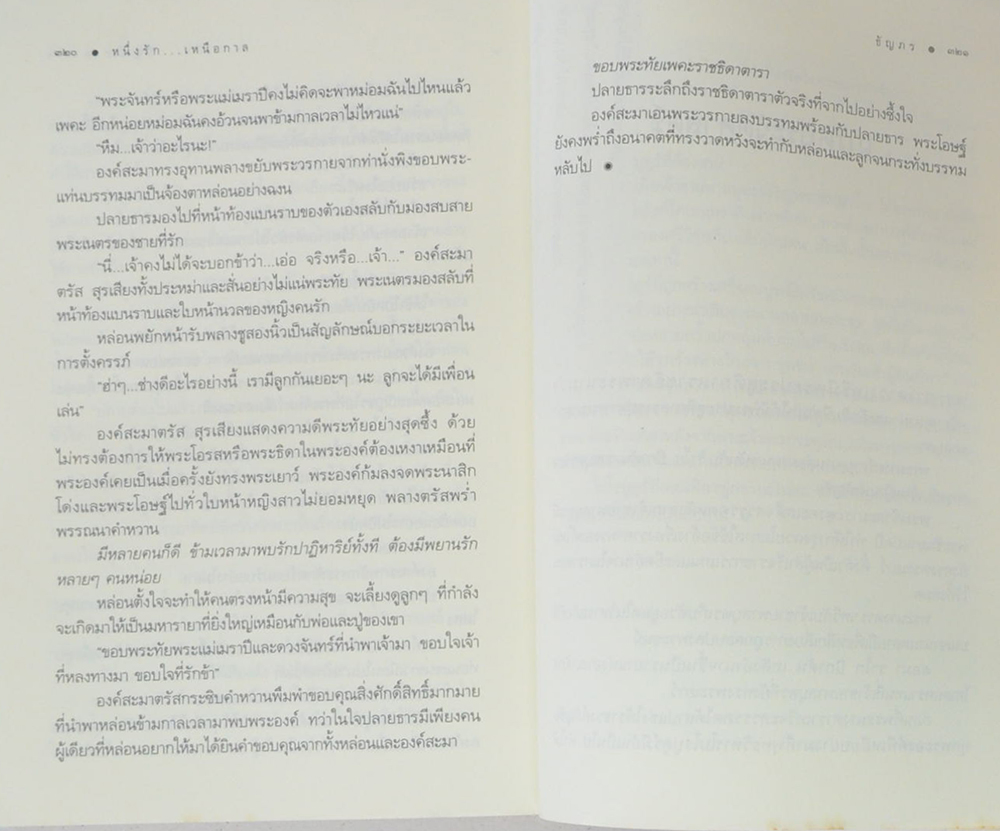 ๓๒๐ ● หนึ่งรัก...เหนือกาล
"พระจันทร์หรือพระแม่เมราปีคงไม่คิดจะพาหม่อมฉันไปไหนแล้ว
เพคะ อีกหน่อยหม่อมฉันคงอ้วนจนพาข้ามกาลเวลาไม่ไหวแน่"
"หืม...เจ้าว่าอะไรนะ!"
องค์สะมาทรงอุทานพลางขยับพระวรกายจากท่านั่งพิงขอบพระ-
แท่นบรรทมมาเป็นจ้องตาหล่อนอย่างฉงน
ปลายธารมองไปที่หน้าท้องแบนราบของตัวเองสลับกับมองสบสาย
พระเนตรของชายที่รัก
"นี่...เจ้าคงไม่ได้จะบอกข้าว่า...เอ่อ จริงหรือ...เจ้า..." องค์สะมา
ตรัส สุรเสียงทั้งประหม่าและสั่นอย่างไม่แน่พระทัย พระเนตรมองสลับที่
หน้าท้องแบนราบและใบหน้านวลของหญิงคนรัก
หล่อนพยักหน้ารับพลางชูสองนิ้วเป็นสัญลักษณ์บอกระยะเวลาใน
การตั้งครรภ์
"ฮ่าๆ...ช่างดีอะไรอย่างนี้ เรามีลูกกันเยอะๆ นะ ลูกจะได้มีเพื่อน
เล่น"
องค์สะมาตรัส สุรเสียงแสดงความดีพระทัยอย่างสุดซึ้ง ด้วย
ไม่ทรงต้องการให้พระโอรสหรือพระธิดาในพระองค์ต้องเหงาเหมือนที่
พระองค์เคยเป็นเมื่อครั้งยังทรงพระเยาว์ พระองค์ก้มลงจดพระนาสิก
โด่งและพระโอษฐ์ไปทั่วใบหน้าหญิงสาวไม่ยอมหยุด พลางตรัสพร่ำ
พรรณนาคำหวาน
มีหลายคนก็ดี ข้ามเวลามาพบรักปาฏิหาริย์ทั้งที ต้องมีพยานรัก
หลายๆ คนหน่อย
หล่อนตั้งใจจะทำให้คนตรงหน้ามีความสุข จะเลี้ยงดูลูกๆ ที่กำลัง
จะเกิดมาให้เป็นมหารายาที่ยิ่งใหญ่เหมือนกับพ่อและปู่ของเขา
"ขอบพระทัยพระแม่เมราปีและดวงจันทร์ที่นำพาเจ้ามา ขอบใจเจ้า
ที่หลงทางมา ขอบใจที่รักข้า"
องค์สะมาตรัสกระซิบคำหวานพึมพำขอบคุณสิ่งศักดิ์สิทธิ์มากมาย
ที่นำพาหล่อนข้ามกาลเวลามาพบพระองค์ ทว่าในใจปลายธารมีเพียงคน
ผู้เดียวที่หล่อนอยากให้มาได้ยินคำขอบคุณจากทั้งหล่อนและองค์สะมา
ธัญภร ● ๓๒๑
ขอบพระทัยเพคะราชธิดาตารา
ปลายธารระลึกถึงราชธิดาตาราตัวจริงที่จากไปอย่างซึ้งใจ
องค์สะมาเอนพระวรกายลงบรรทมพร้อมกับปลายธาร พระโอษฐ์
ยังคงพร่ำถึงอนาคตที่ทรงวาดหวังจะทำกับหล่อนและลูกจนกระทั่งบรรทม
หลับไป ●